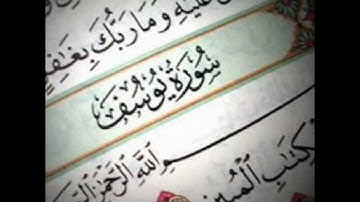 عَلَيْهِ وَمَا رَبُّكَ بِغَٰفِلٍ
سُورَةُ يُوسُفَ
بِسْمِ ٱللَّهِ ٱلرَّحْمَٰنِ
ٱلْكِتَٰبِ ٱلْمُبِينِ